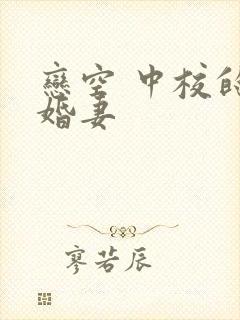 戀空 中校的
婚妻
廖若辰